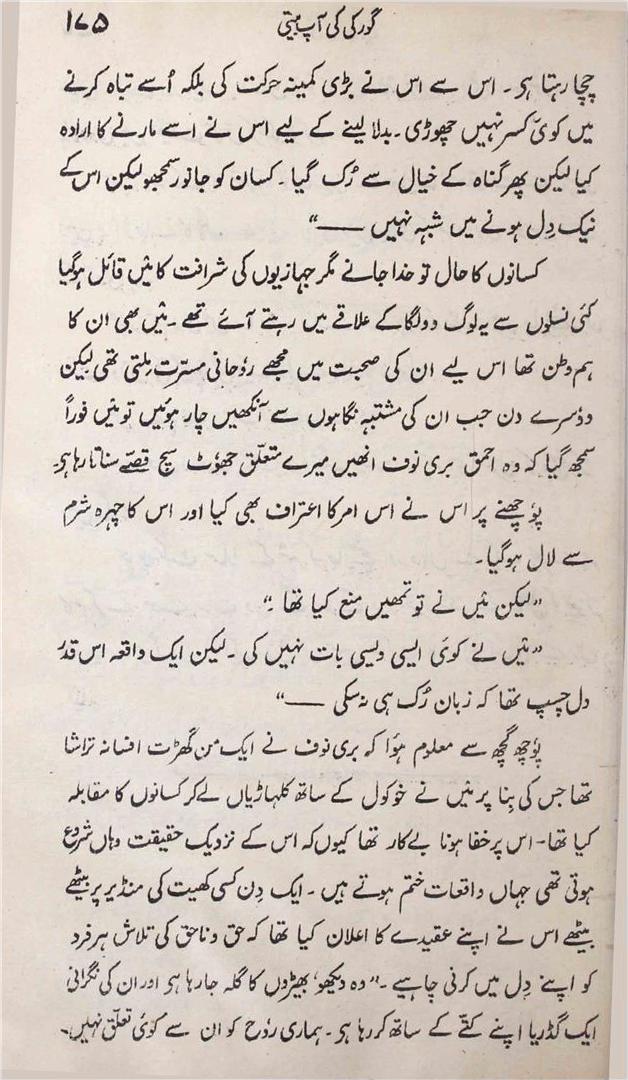 گورکی کی آپ بیتی ۱۷۵
چچا رہتا ہی۔ اس سے اس نے بڑی کمینہ حرکت کی بلکہ اُسے تباہ کرنے
میں کوئ کسر نہیں چھوڑی۔ بدلا لینے کے لیے اس نے اسے مارنے کا ارادہ
کیا لیکن پھر گناہ کے خیال سے رُک گیا۔ کسان کو جانور سمجھو لیکن اس کے
نیک دِل ہونے میں شبہ نہیں ——"
کسانوں کا حال تو خدا جانے مگر جہازیوں کی شرافت کا مَیں قائل ہوگیا
کئی نسلوں سے یہ لوگ دولگا کے علاقے میں رہتے آئے تھے۔ مَیں بھی ان کا
ہم وطن تھا اس لیے ان کی صحبت میں مجھے رؤحانی مسرّت مِلتی تھی لیکن
دؤسرے دن جب ان کی مشتبہ نگاہوں سے آنکھیں چار ہوئیں تو مَیں فوراً
سمجھ گیا کہ وہ احمق بری نوف انھیں میرے متعلّق جھوٹ سچ قصّے سناتا رہا ہی۔
پؤچھنے پر اس نے اس امر کا اعتراف بھی کیا اور اس کا چہرہ شرم
سے لال ہوگیا۔
"لیکن مَیں نے تو تمھیں منع کیا تھا۔"
"مَیں نے کوئ ایسی ویسی بات نہیں کی۔ لیکن ایک واقعہ اس قدر
دل چسپ تھا کہ زبان رُک ہی نہ سکی ——"
پؤچھ گچھ سے معلوم ہؤا کہ بری نوف نے ایک من گھڑت افسانہ تراشا
تھا جس کی بِنا پر مَیں نے خوکول کے ساتھ کلہاڑیاں لے کر کسانوں کا مقابلہ
کیا تھا۔ اس پر خفا ہونا بےکار تھا کیوں کہ اس کے نزدیک حقیقت وہاں شروع
ہوتی تھی جہاں واقعات ختم ہوتے ہیں۔ ایک دِن کسی کھیت کی منڈیر پر بیٹھے
بیٹھے اس نے اپنے عقیدے کا اعلان کیا تھا کہ حق و ناحق کی تلاش ہر فرد
کو اپنے دِل میں کرنی چاہیے۔ "وہ دیکھو، بھیڑوں کا گلہ جا رہا ہی اور ان کی نگرانی
ایک گڈریا اپنے کتّے کے ساتھ کر رہا ہی۔ ہماری رؤح کو ان سے کوئ تعلّق نہیں۔